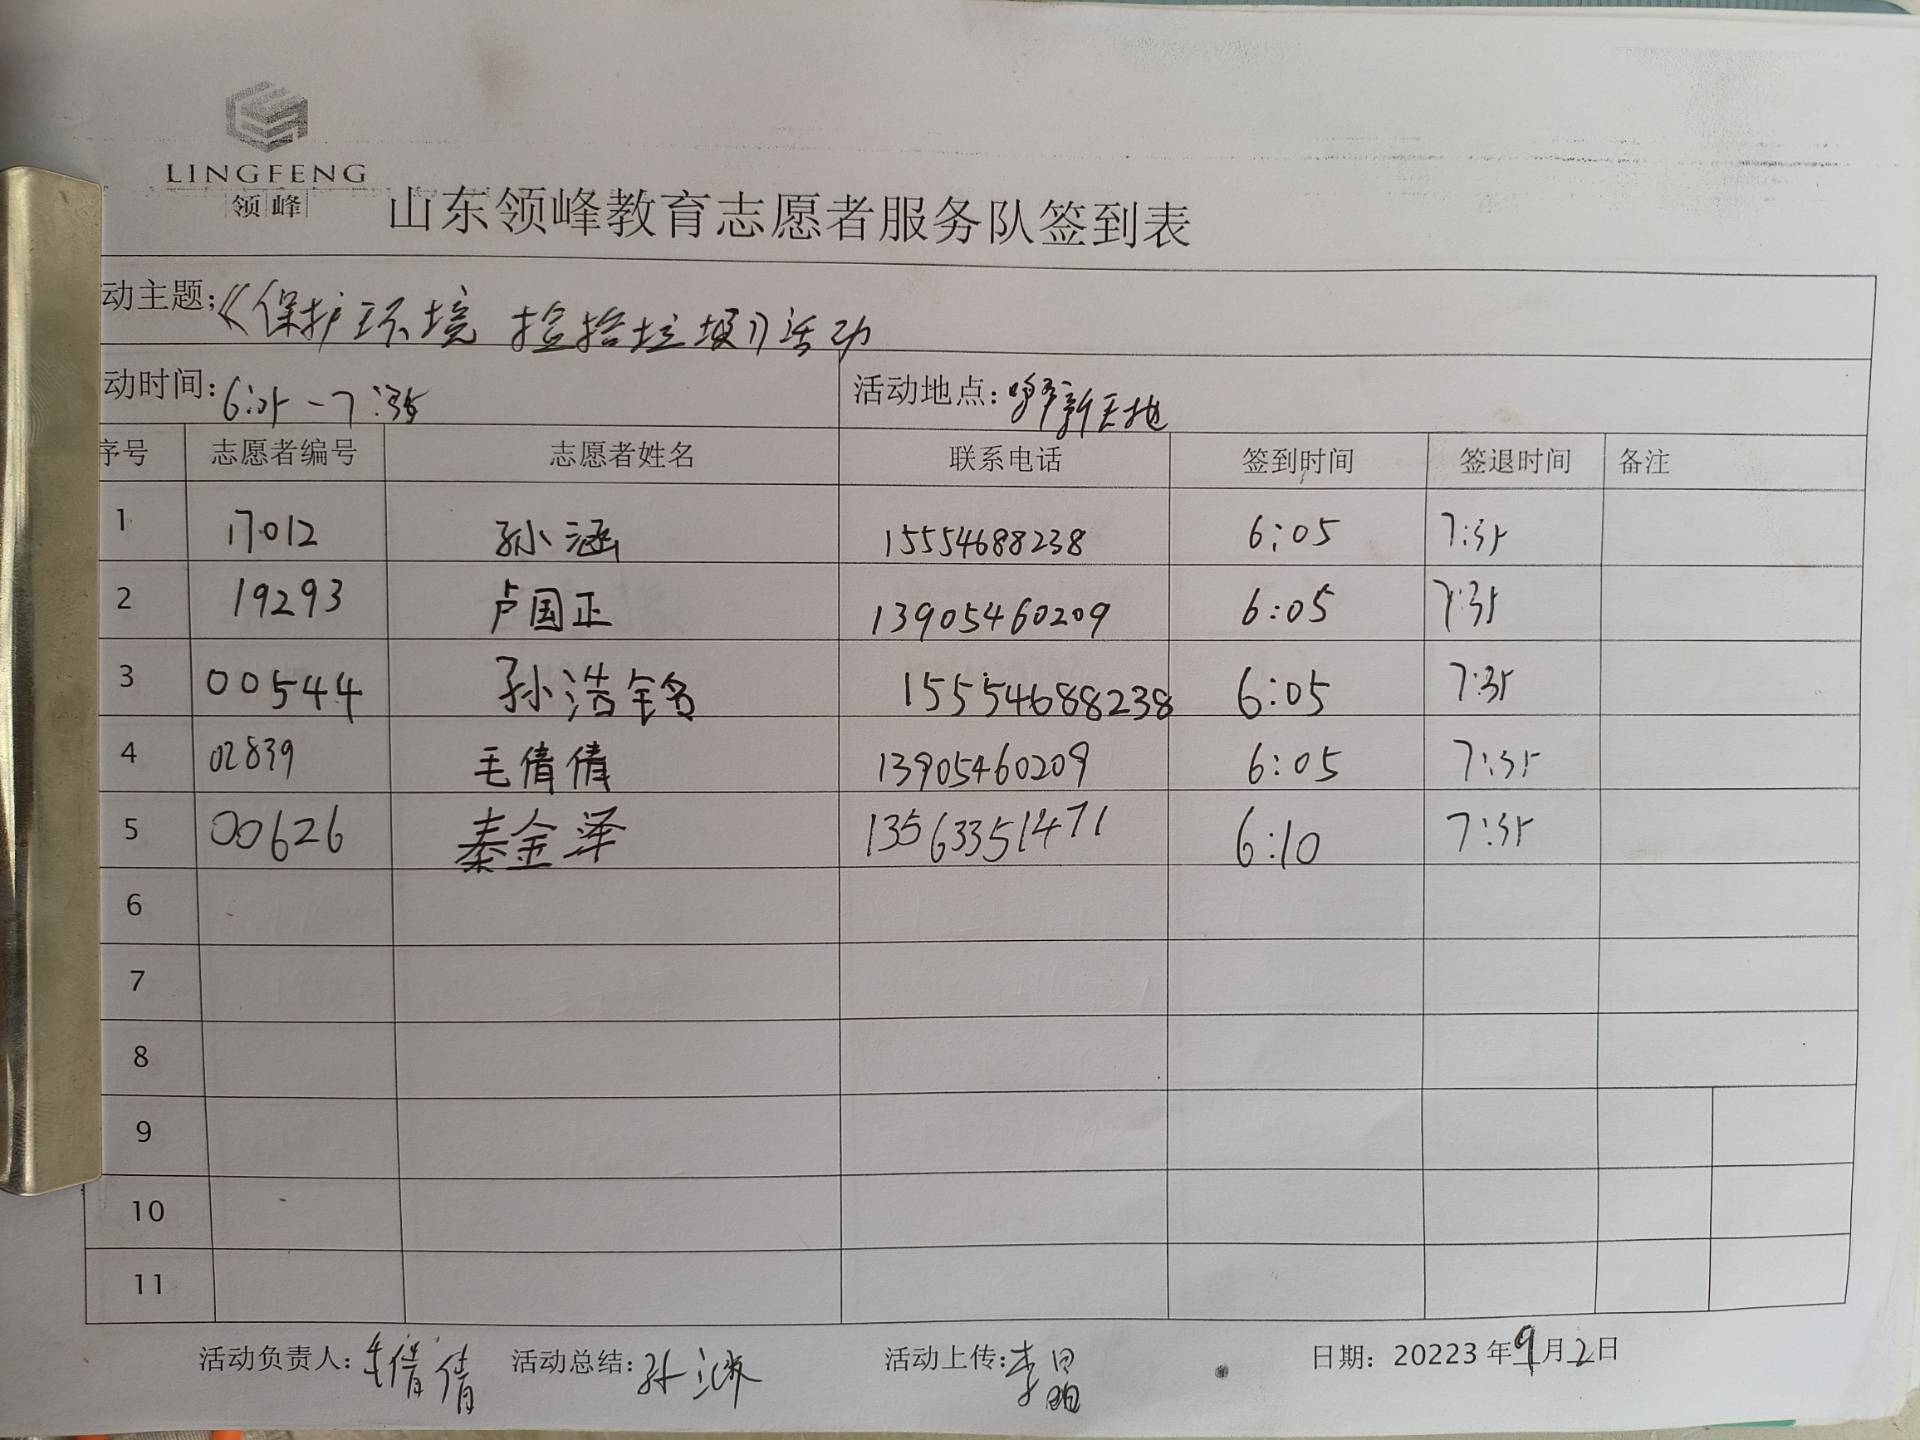 LINGFENG
领峰
山东领峰教育志愿者服务队签到表
动主题:《保护环境 捡拾垃圾》活动
动时间:6:05-7:35 活动地点:新天地
序号 志愿者编号 志愿者姓名 联系电话 签到时间 签退时间 备注
1 17012 孙涵 15554688238 6:05 7:35
2 19293 卢国正 13905460209 6:05 7:35
3 00544 孙浩铭 15554688238 6:05 7:35
4 02839 毛倩倩 13905460209 6:05 7:35
5 00626 秦金泽 13563351471 6:10 7:35
6
7
8
9
10
11
活动负责人:毛倩倩 活动总结:孙涵 活动上传:李晶 日期: 20223年9月2日